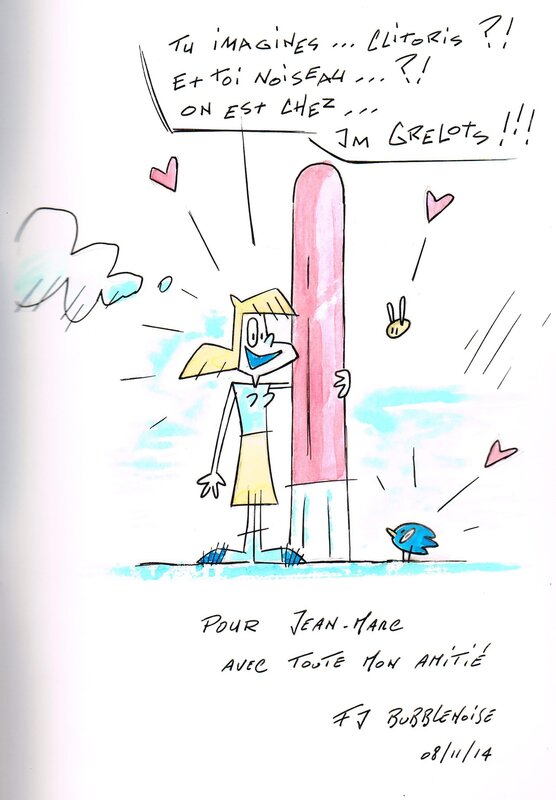 TU IMAGINES ... CLITORIS ?!
ET TOI NOISEAU ... ?!
ON EST CHEZ ...
JM GRELOTS !!!
POUR JEAN-MARC
AVEC TOUTE MON AMITIÉ
FJ BUBBLENOISE
08/11/14